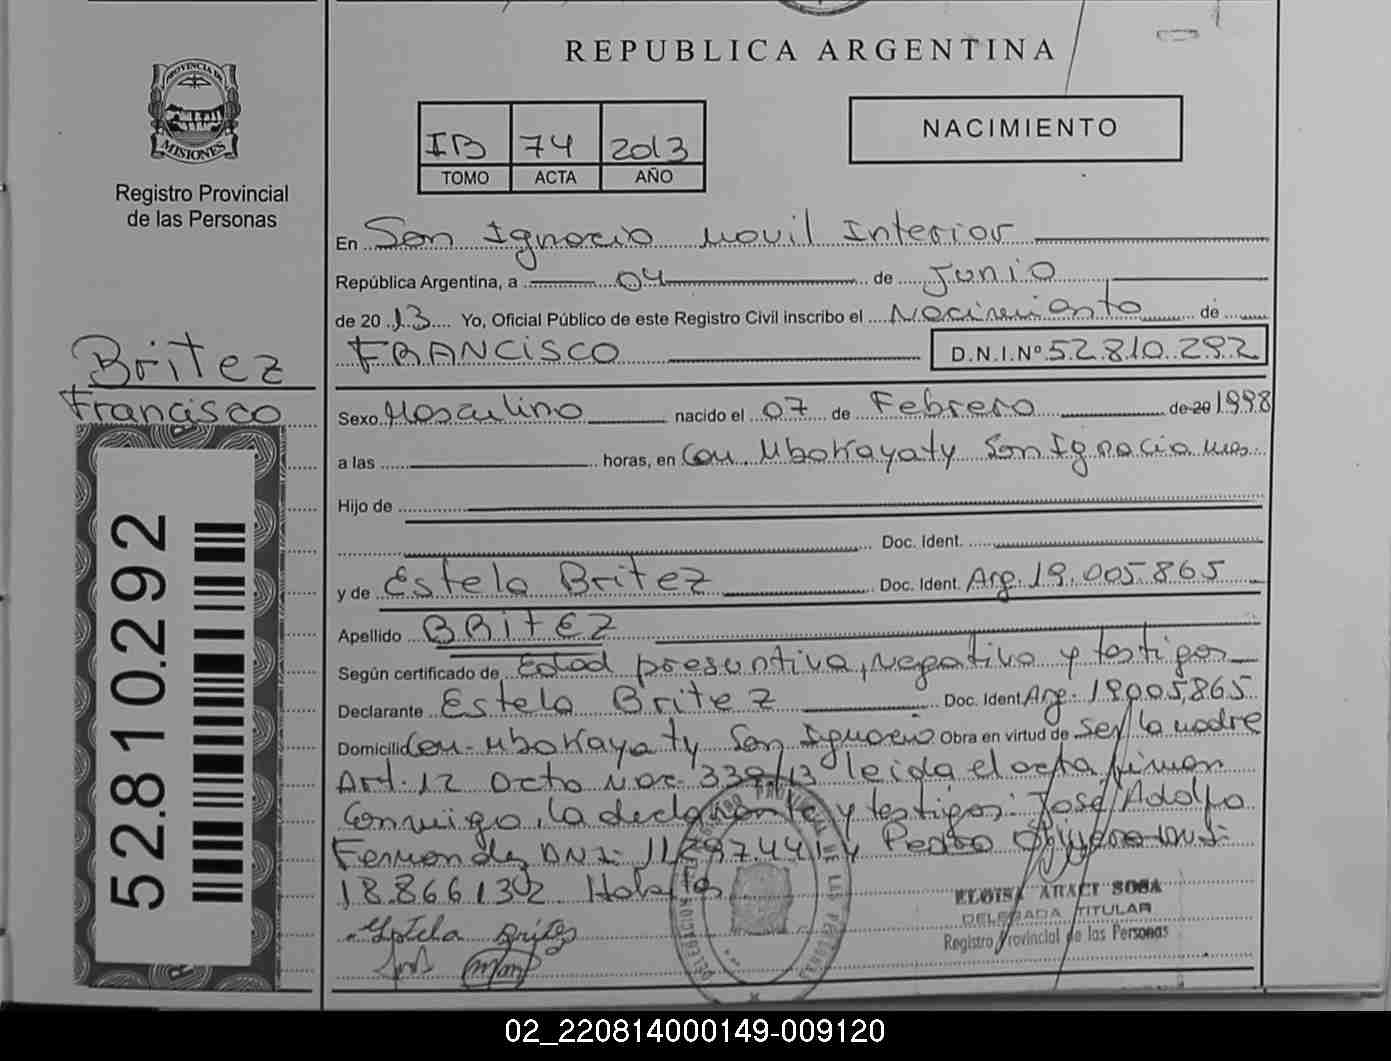 REPUBLICA ARGENTINA
PROVINCIA DE
MISIONES
Registro Provincial
de las Personas
IB 74 2013
TOMO ACTA AÑO
NACIMIENTO
En San Ignacio Movil Interior
República Argentina, a 04 de Junio
de 2013 Yo, Oficial Público de este Registro Civil inscribo el Nacimiento de
FRANCISCO D.N.I.Nº 52.810.292
Britez
Francisco
52.810.292
Sexo Masculino nacido el 07 de Febrero de 20 1998
a las horas, en Com. Mbokayaty San Ignacio Mnes.
Hijo de
Doc. Ident.
y de Estela Britez Doc. Ident. Arg. 19.005.865
Apellido BRITEZ
Según certificado de Edad presuntiva, negativa y testigos
Declarante Estela Britez Doc. Ident Arg. 19.005.865
Domicilio Com. Mbokayaty San Ignacio Obra en virtud de ser la madre
Art. 12 Dcto Nro. 339/13 leida el acta firman
Conmigo, la declarante y testigos: José Adolfo
Fernandez DNI: y Pedro DNI:
18.866.132
Estela Britez
ELOISA ARACI SOSA
DELEGADA TITULAR
Registro Provincial de las Personas
02_220814000149-009120